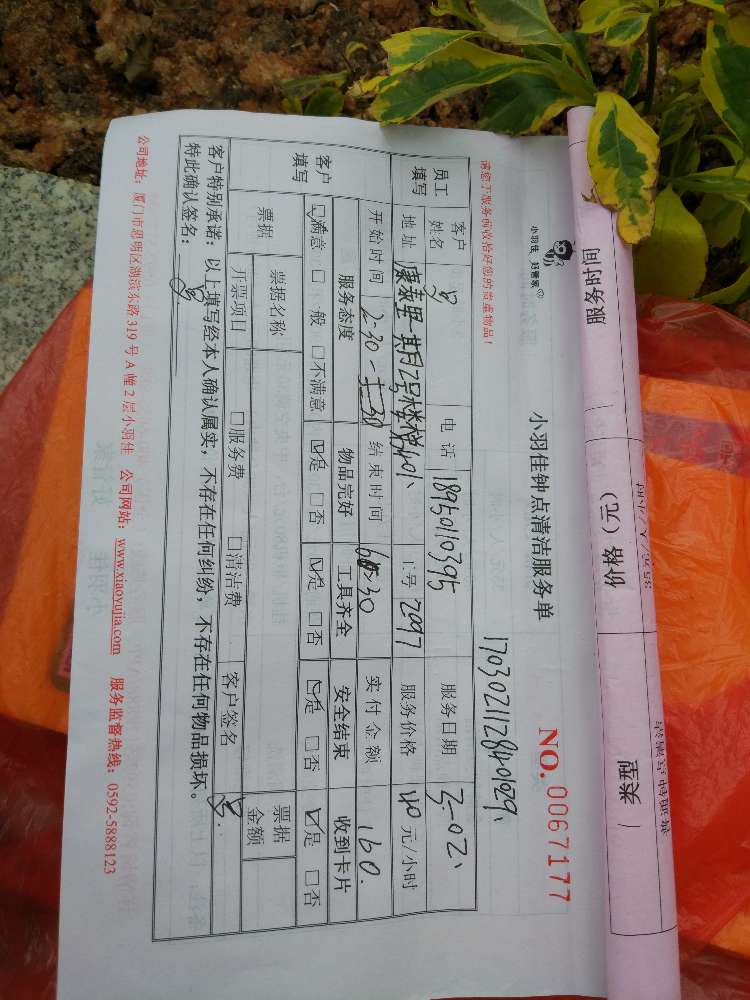 服务时间 价格（元） 类型
小羽佳 好管家
小羽佳钟点清洁服务单
NO. 0067177
请您于服务前收拾好您的贵重物品！
1703021128401029
员工填写 客户姓名 电话 18950110395 服务日期 3-02
地址 工号 2097 服务价格 40 元/小时
开始时间 2:30 结束时间 6:30 实付金额 160.
客户填写 服务态度 物品完好 工具齐全 安全结束 收到卡片
☑满意 □一般 □不满意 ☑是 □否 ☑是 □否 ☑是 □否 ☑是 □否
票据 票据名称 客户签名 票据金额
开票项目 □服务费 □清洁费
客户特别承诺：以上填写经本人确认属实，不存在任何纠纷，不存在任何物品损坏。
特此确认签名：
公司地址：厦门市思明区湖滨东路319号A幢2层小羽佳 公司网站：www.xiaoyujia.com 服务监督热线：0592-5888123